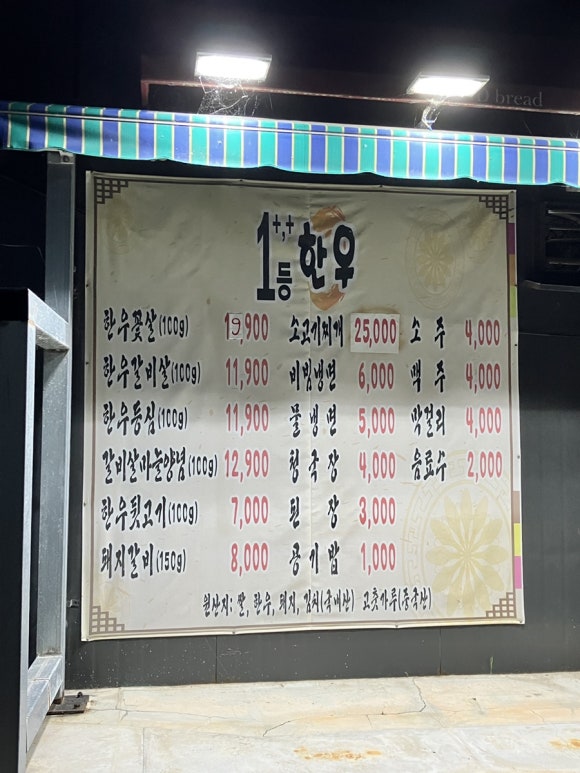 bread
1++등 한우
한우꽃살(100g) 19,900 소고기찌개 25,000 소주 4,000
한우갈비살(100g) 11,900 비빔냉면 6,000 맥주 4,000
한우등심(100g) 11,900 물냉면 5,000 막걸리 4,000
갈비살마늘양념(100g) 12,900 청국장 4,000 음료수 2,000
한우뒷고기(100g) 7,000 된장 3,000
돼지갈비(150g) 8,000 공기밥 1,000
원산지: 쌀, 한우, 돼지, 김치(국내산) 고춧가루(중국산)